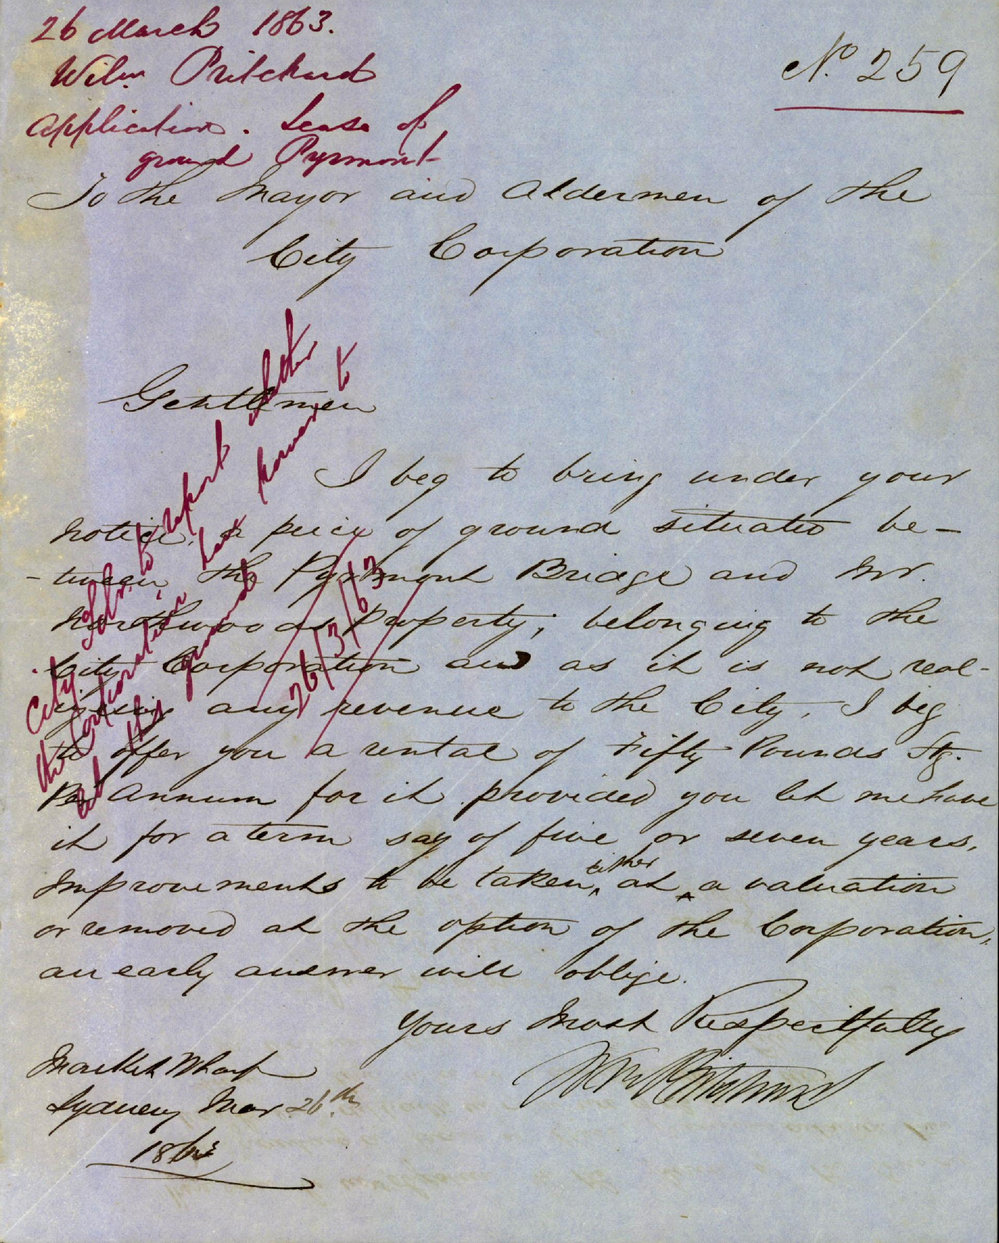 26 March 1863.
Wilm Pritchard
Application. Lease of
ground Pyrmont
No 259
To the Mayor and Aldermen of the
City Corporation
Gentlemen
I beg to bring under your
notice, a piece of ground situated be-
-tween, the Pyrmont Bridge and Mr.
Northwoods Property, belonging to the
City Corporation and as it is not real-
izing any revenue to the City, I beg
to offer you a rental of Fifty Pounds Stg.
Per Annum for it provided you let me have
it for a term say of five or seven years,
Improvements to be taken either at a valuation
or removed at the option of the Corporation,
an early answer will oblige.
Yours Most Respectfully
Wm Pritchard
Market Wharf
Sydney Mar 26th
1863
City Solr. to report whether
the Corporation has power to
let this ground
26/3/63